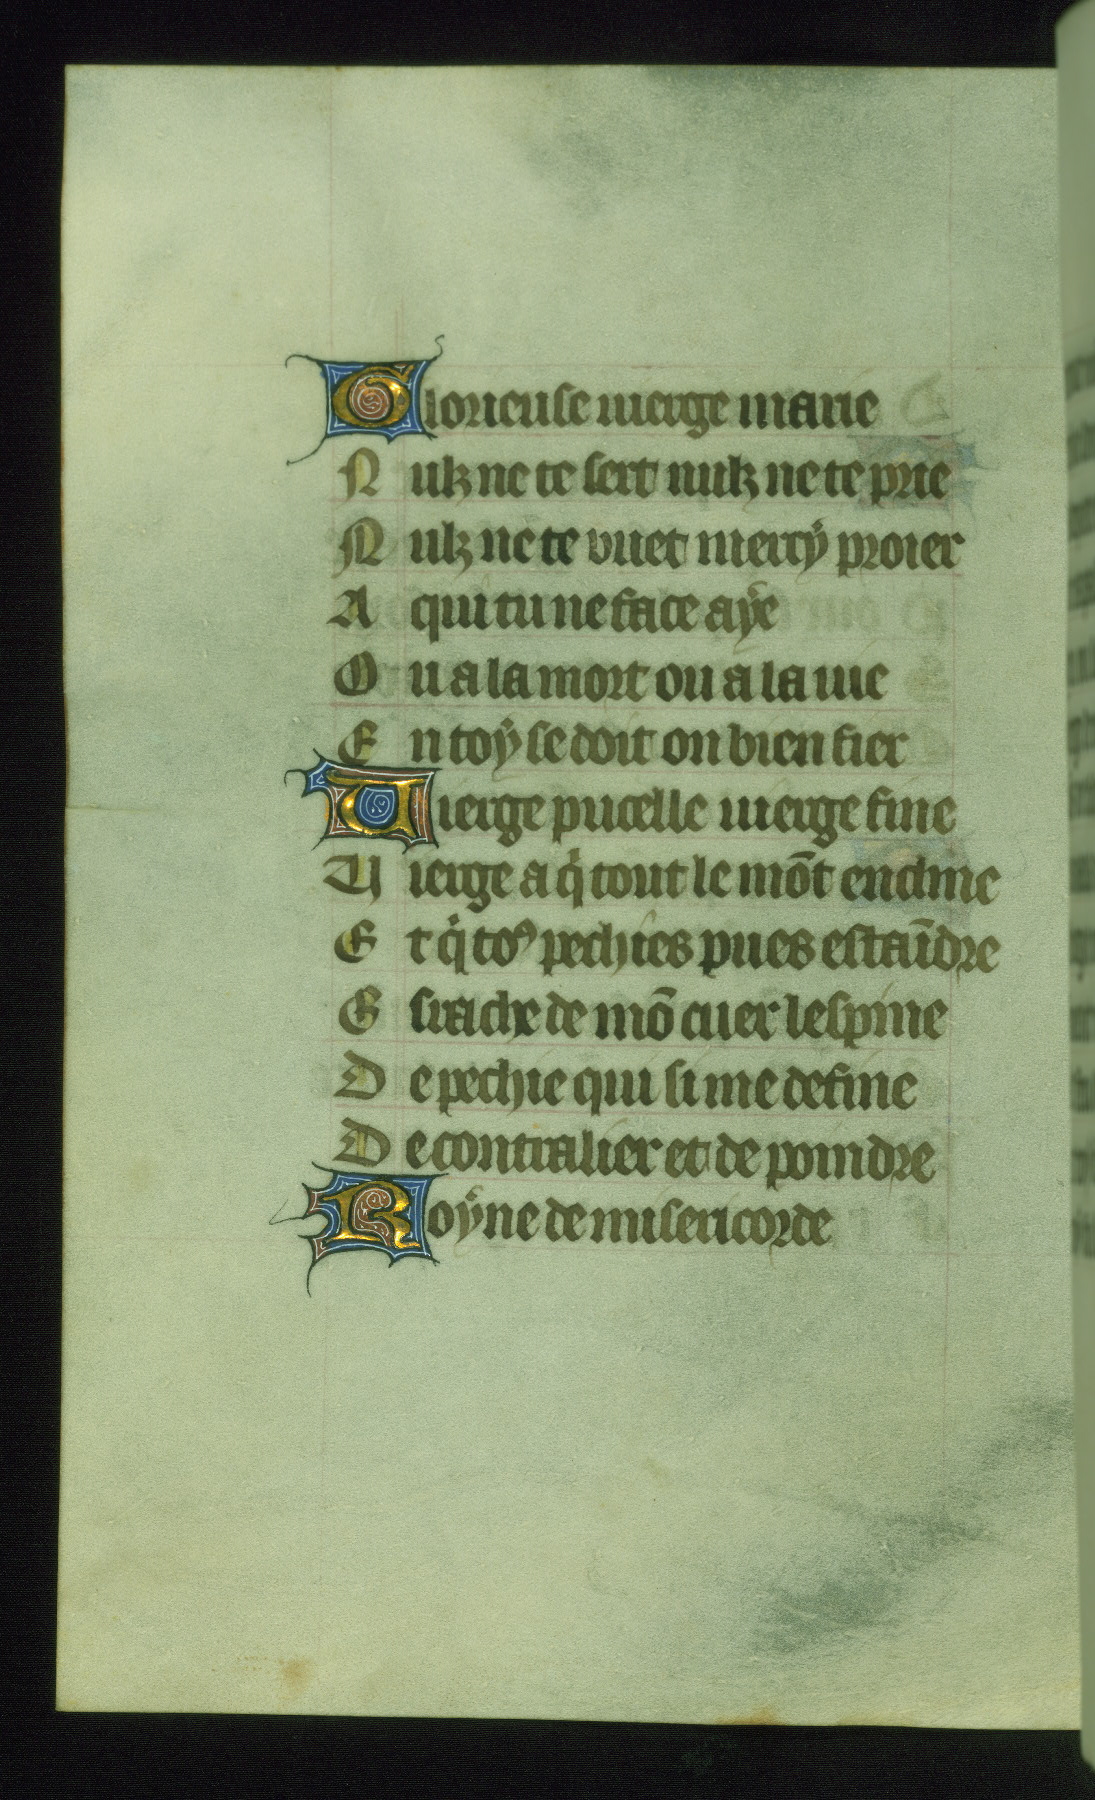 Glorieuse uierge marie
Nulz ne te sert nulz ne te prie
Nulz ne te vuet mercÿ proier
A qui tu ne face aÿe
Ou a la mort ou a la uie
En toÿ se doit on bien fier
Uierge pucelle uierge fine
Uierge a q̇ tout le mōt encline
Et q̇ toꝰ pechies pues estaīdre
Esrache de mō cuer lespine
De pechie qui si me define
De contralier et de poindre
Roÿne de misericorde